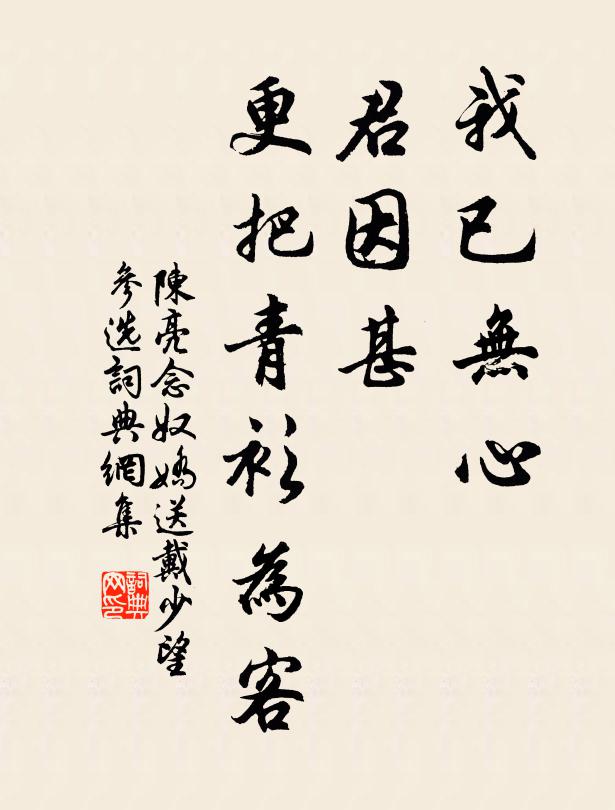 我已無心
君因甚
更把青衫為客
陳亮念奴嬌送戴少望
參选詞典網集
詞典網印